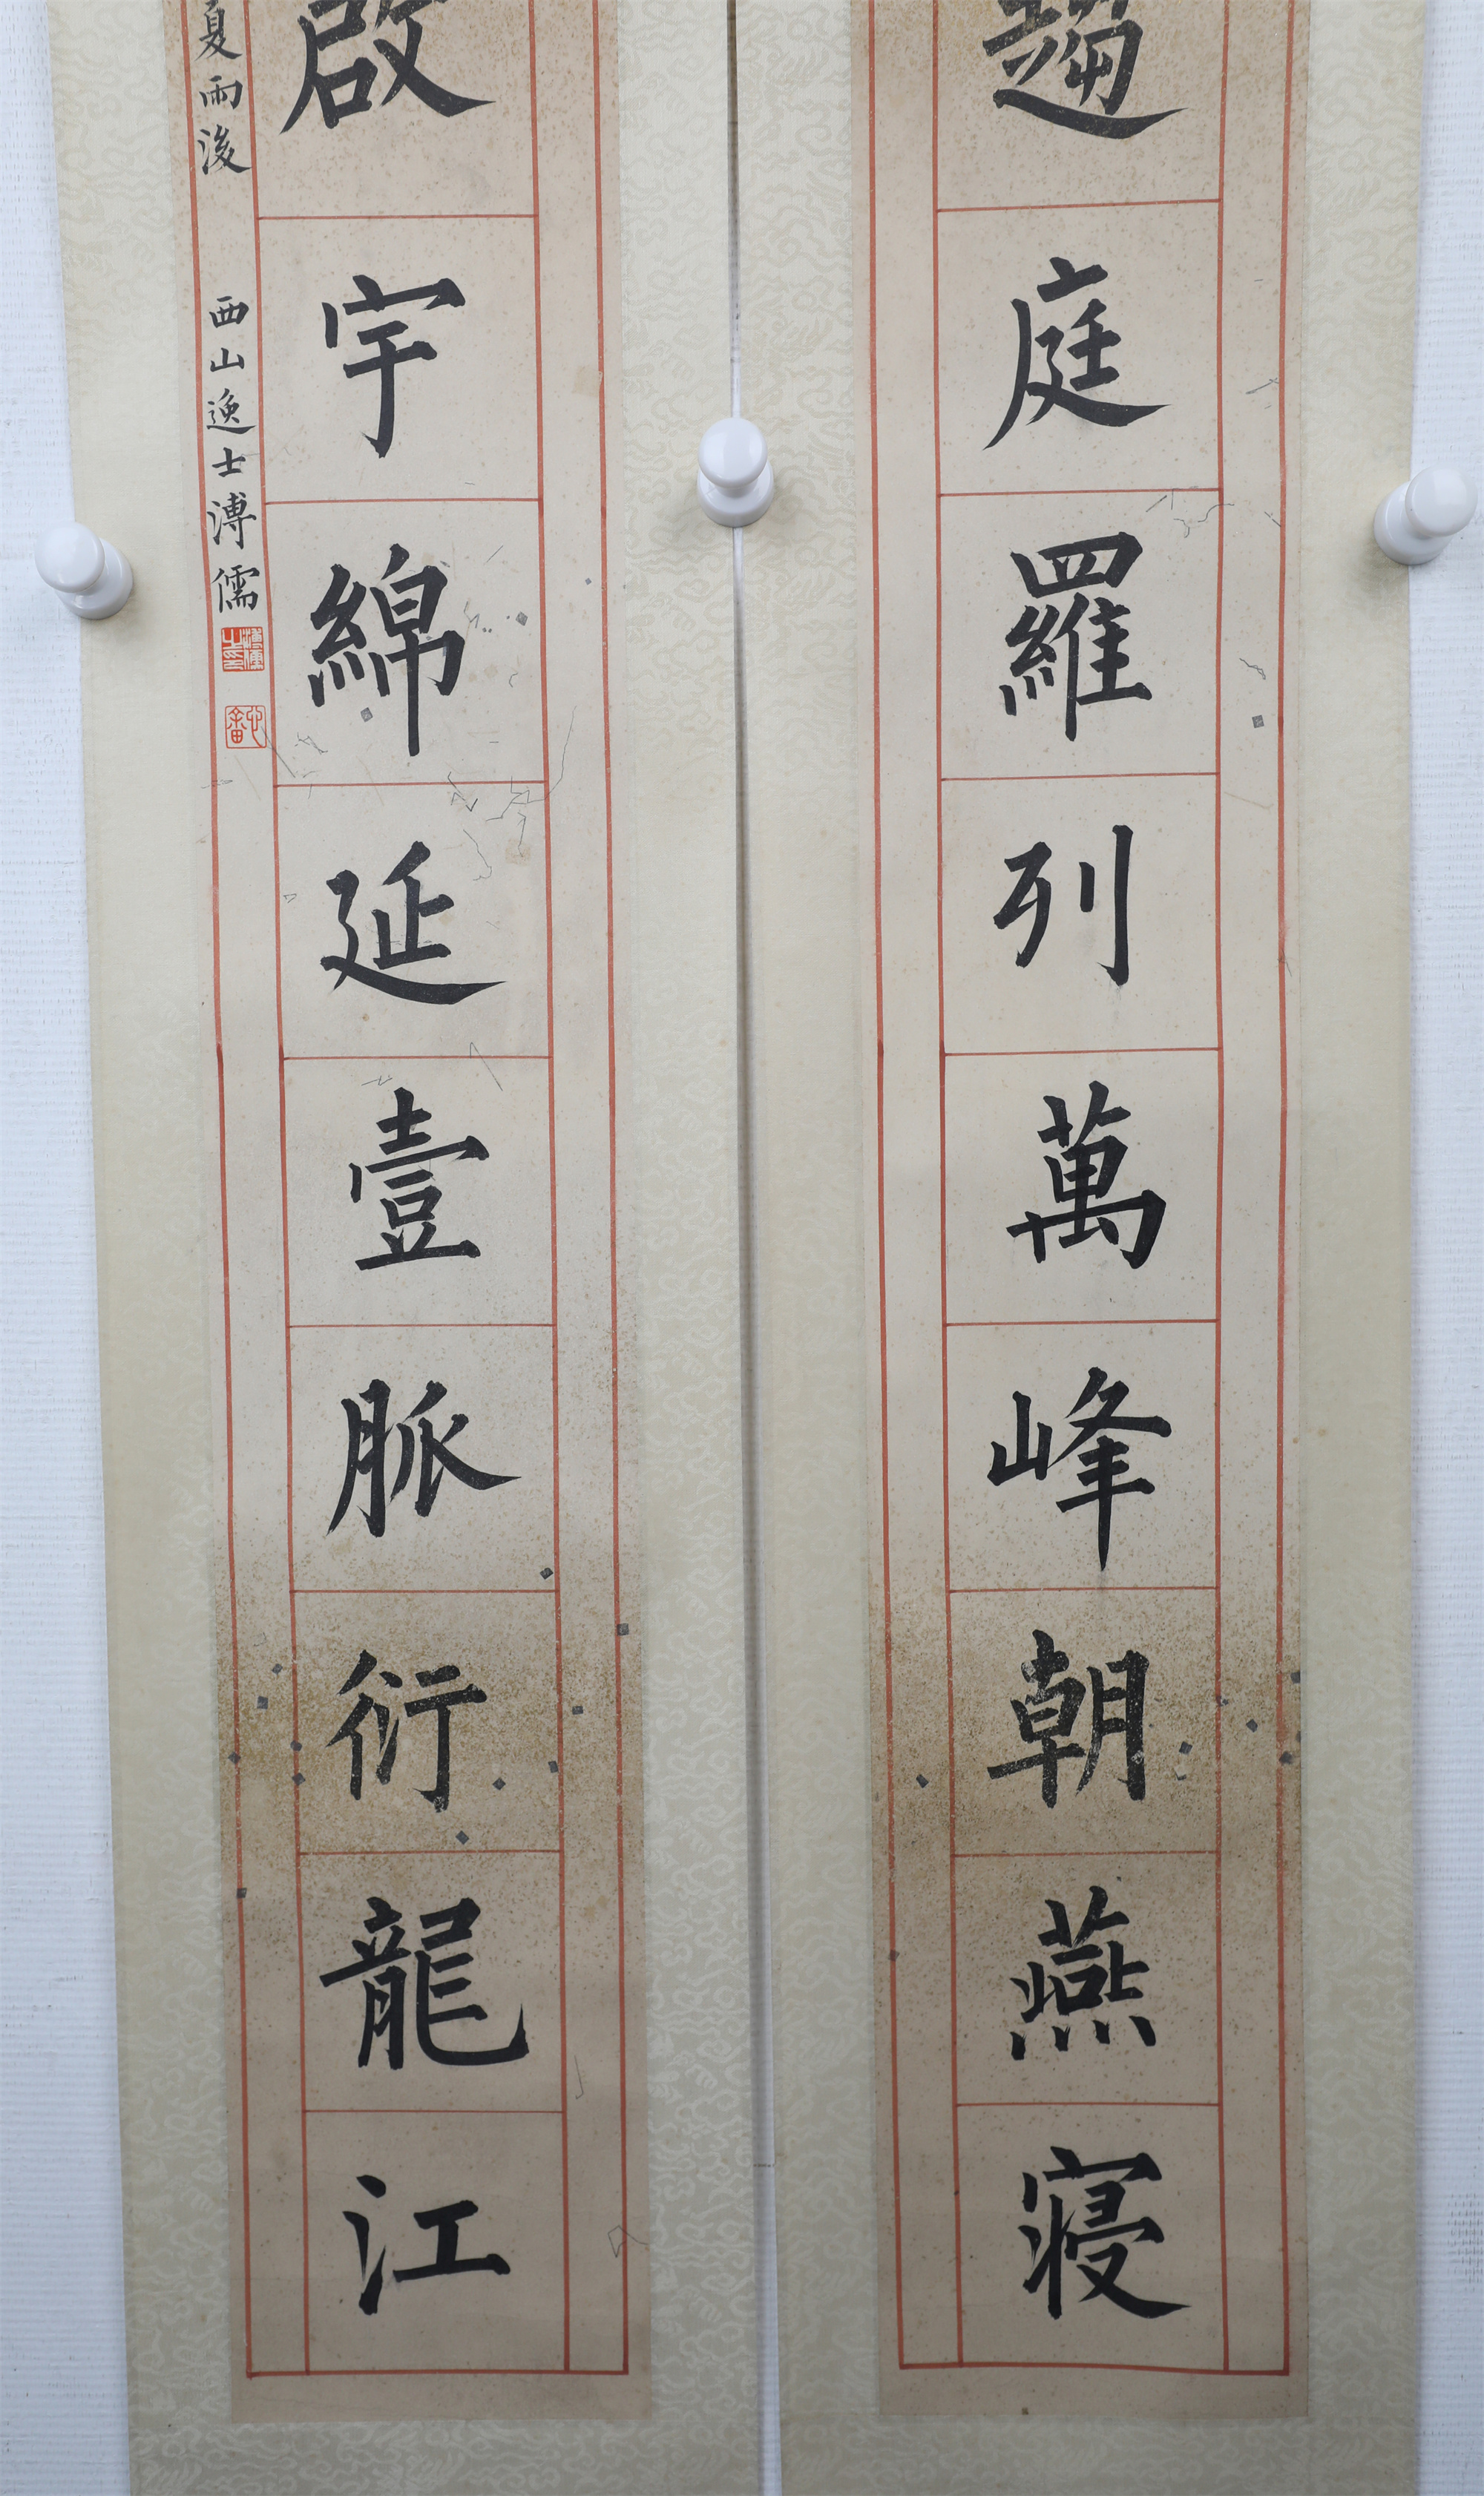 趨庭羅列萬峰朝燕寢
啟宇綿延壹脈衍龍江
夏雨後 西山逸士溥儒
溥儒之印